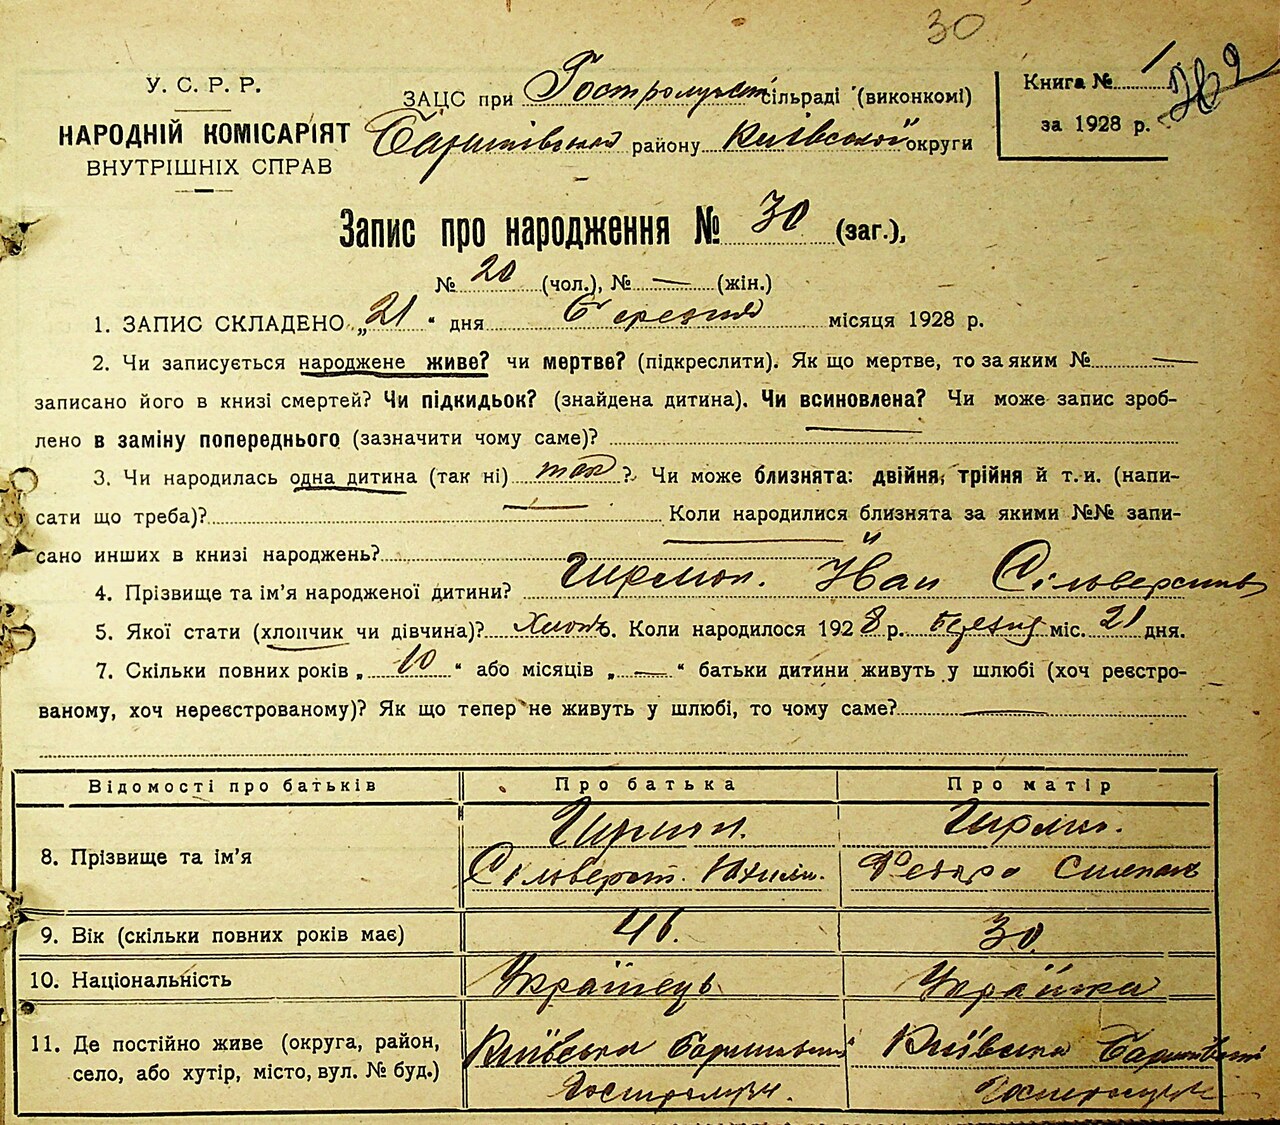 30
У. С. Р. Р.
НАРОДНІЙ КОМІСАРІЯТ
ВНУТРІШНІХ СПРАВ
ЗАЦС при Гостролуцькій сільраді (виконкомі)
Баришівський району Київської округи
Книга № 1
за 1928 р.
Запис про народження № 30 (заг.),
№ 20 (чол.), № — (жін.)
1. ЗАПИС СКЛАДЕНО „21“ дня березня місяця 1928 р.
2. Чи записується народжене живе? чи мертве? (підкреслити). Як що мертве, то за яким № —
записано його в книзі смертей? Чи підкидьок? (знайдена дитина). Чи всиновлена? Чи може запис зроб-
лено в заміну попереднього (зазначити чому саме)?
3. Чи народилась одна дитина (так ні) так? Чи може близнята: двійня, трійня й т. и. (напи-
сати що треба)? Коли народилися близнята за якими №№ запи-
сано инших в книзі народжень?
4. Прізвище та ім’я народженої дитини? Іван Сільверстів
5. Якої стати (хлопчик чи дівчина)? Хлопч. Коли народилося 1928 р. березня міс. 21 дня.
7. Скільки повних років „10“ або місяців „—“ батьки дитини живуть у шлюбі (хоч реєстро-
ваному, хоч нереєстрованому)? Як що тепер не живуть у шлюбі, то чому саме? —
Відомості про батьків Про батька Про матір
8. Прізвище та ім’я
Сільверст.
9. Вік (скільки повних років має) 46. 30
10. Національність Українець Українка
11. Де постійно живе (округа, район,
село, або хутір, місто, вул. № буд.)
Київська Баришівський Київська Баришівський
Гостролуччя. Гостролуччя